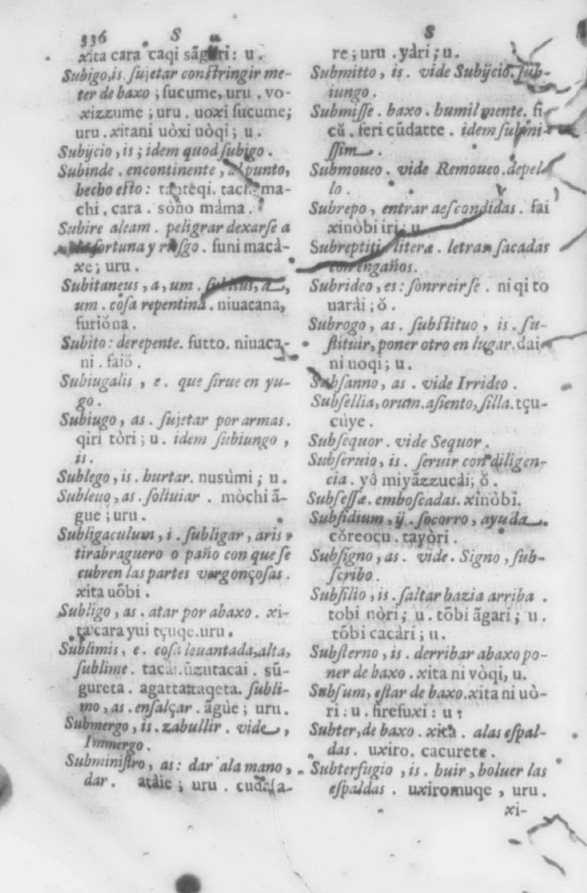 336 S u
xita cara caqi sāgari: u.
Subigo, is. sujetar constringir me-
ter de baxo; sucume, uru. vo-
xizzume; uru. uoxi sucume;
uru. xitani uòxi uòqi; u.
Subijcio, is; idem quod subigo.
Subinde. encontinente, a punto,
hecho esto: tachima-
chi, cara. sòno màma.
Subire aleam. peligrar dexarse a
fortuna y riesgo. funi macà-
xe; uru.
Subitaneus, a, um. subitus, a,
um. cosa repentina. niuacana,
furiòna.
Subito: derepente. futto. niuaca-
ni. faiŏ.
Subiugalis, e. que sirue en yu-
go.
Subiugo, as. sujetar por armas.
qiri tòri; u. idem subiungo,
is.
Sublego, is. hurtar. nusùmi; u.
Subleuo, as. soliuiar. mòchi ā-
gue; uru.
Subligaculum, i. subligar, aris,
tirabraguero o paño con que se
cubren las partes vergonçosas.
xita uōbi.
Subligo, as. atar por abaxo. xi-
ta cara yui tçuqe. uru.
Sublimis, e. cosa leuantada, alta,
sublime. tacai. ūzutacai. sū-
gureta. agattaraqeta. subli-
mo, as. ensalçar. āgùe; uru.
Submergo, is. zabullir. vide,
Immergo.
Subministro, as: dar a la mano,
dar. atàie; uru. cudasa-
S
re; uru. yàri; u.
Submitto, is. vide Subijcio. sub-
iungo.
Submisse. baxo. humilmente. fi
cŭ. feri cūdatte. idem submi-
ssim.
Submoueo. vide Remoueo. depel-
lo.
Subrepo, entrar aescondidas. fai
xinòbi iri; u.
Subreptiti literæ. letras sacadas
con engaños.
Subrideo, es: sonrreirse. niqito
uarài; ŏ.
Subrogo, as. substituo, is. su-
stituir, poner otro en lugar. dai
ni uoqi; u.
Subsanno, as. vide Irrideo.
Subsellia, orum. asiento, silla. tçu-
cùye.
Subsequor. vide Sequor.
Subseruio, is. seruir con diligen-
cia. yŏ miyāzzucài; ŏ.
Subsessæ. emboscadas. xinòbi.
Subsidium, ij. socorro, ayuda.
cŏreocu. tayòri.
Subsigno, as. vide. Signo, sub-
scribo.
Subsilio, is. saltar hazia arriba.
tobi nòri; u. tōbi āgari; u.
tōbi cacàri; u.
Substerno, is. derribar abaxo po-
ner de baxo. xita ni vòqi, u.
Subsum, estar de baxo. xita ni uò-
ri: u. firefuxi: u;
Subter, de baxo. xita. alas espal-
das. uxiro. cacurete.
Subterfugio, is. huir, boluer las
espaldas. uxiromuqe, uru.
xi-